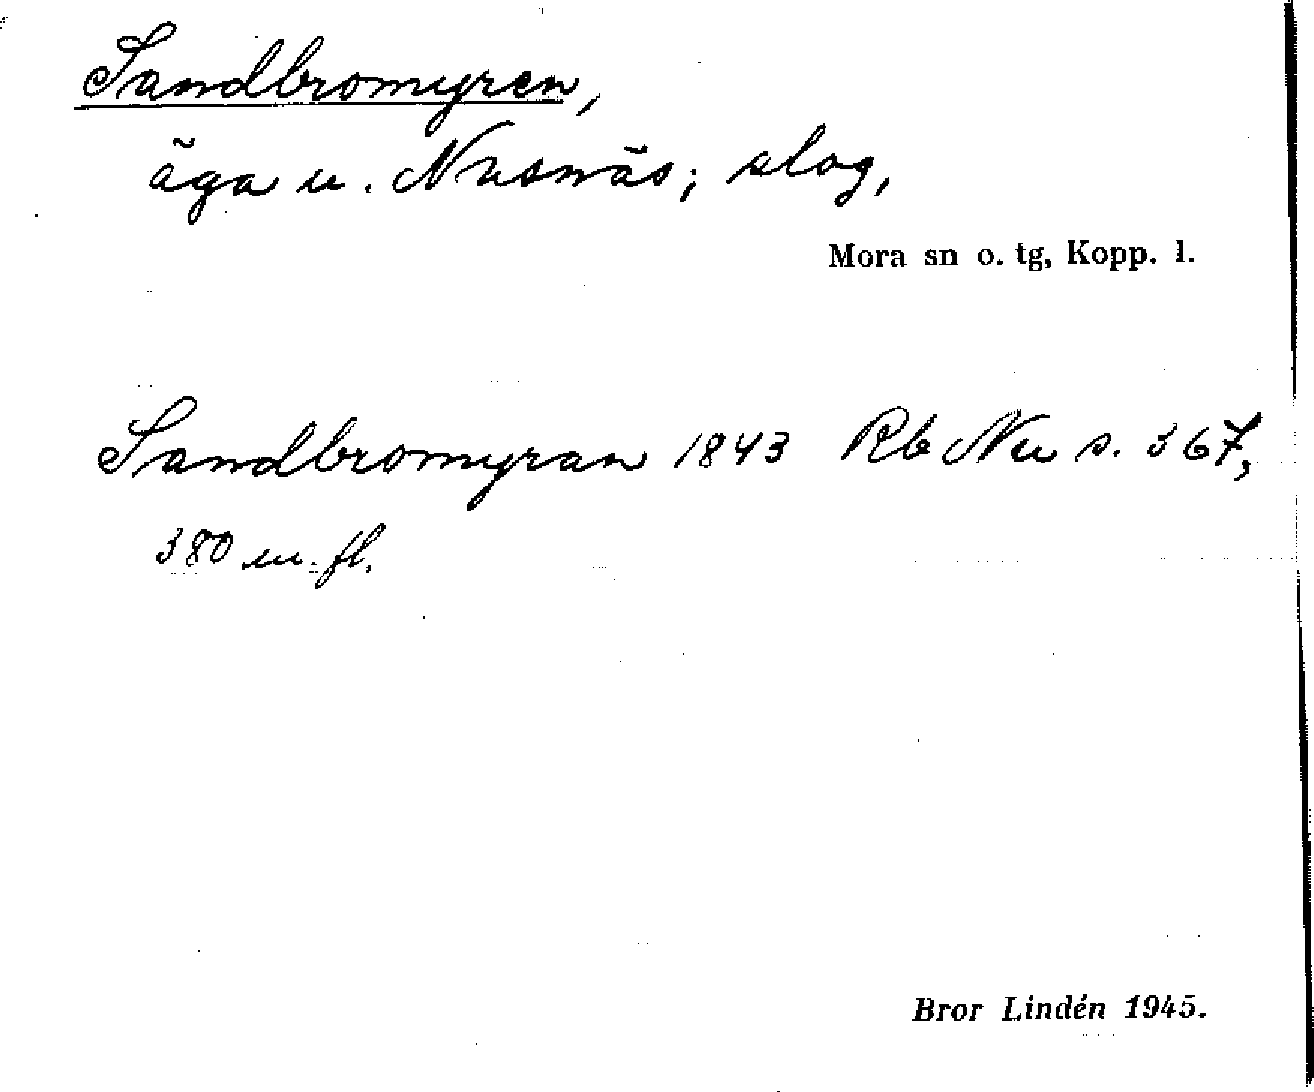 Sandbromyren,
äga u. Nusnäs; slog,
Mora sn o. tg, Kopp. l.
Sandbromyran 1843 Rb Nu s. 367,
380 m. fl.
Bror Lindén 1945.